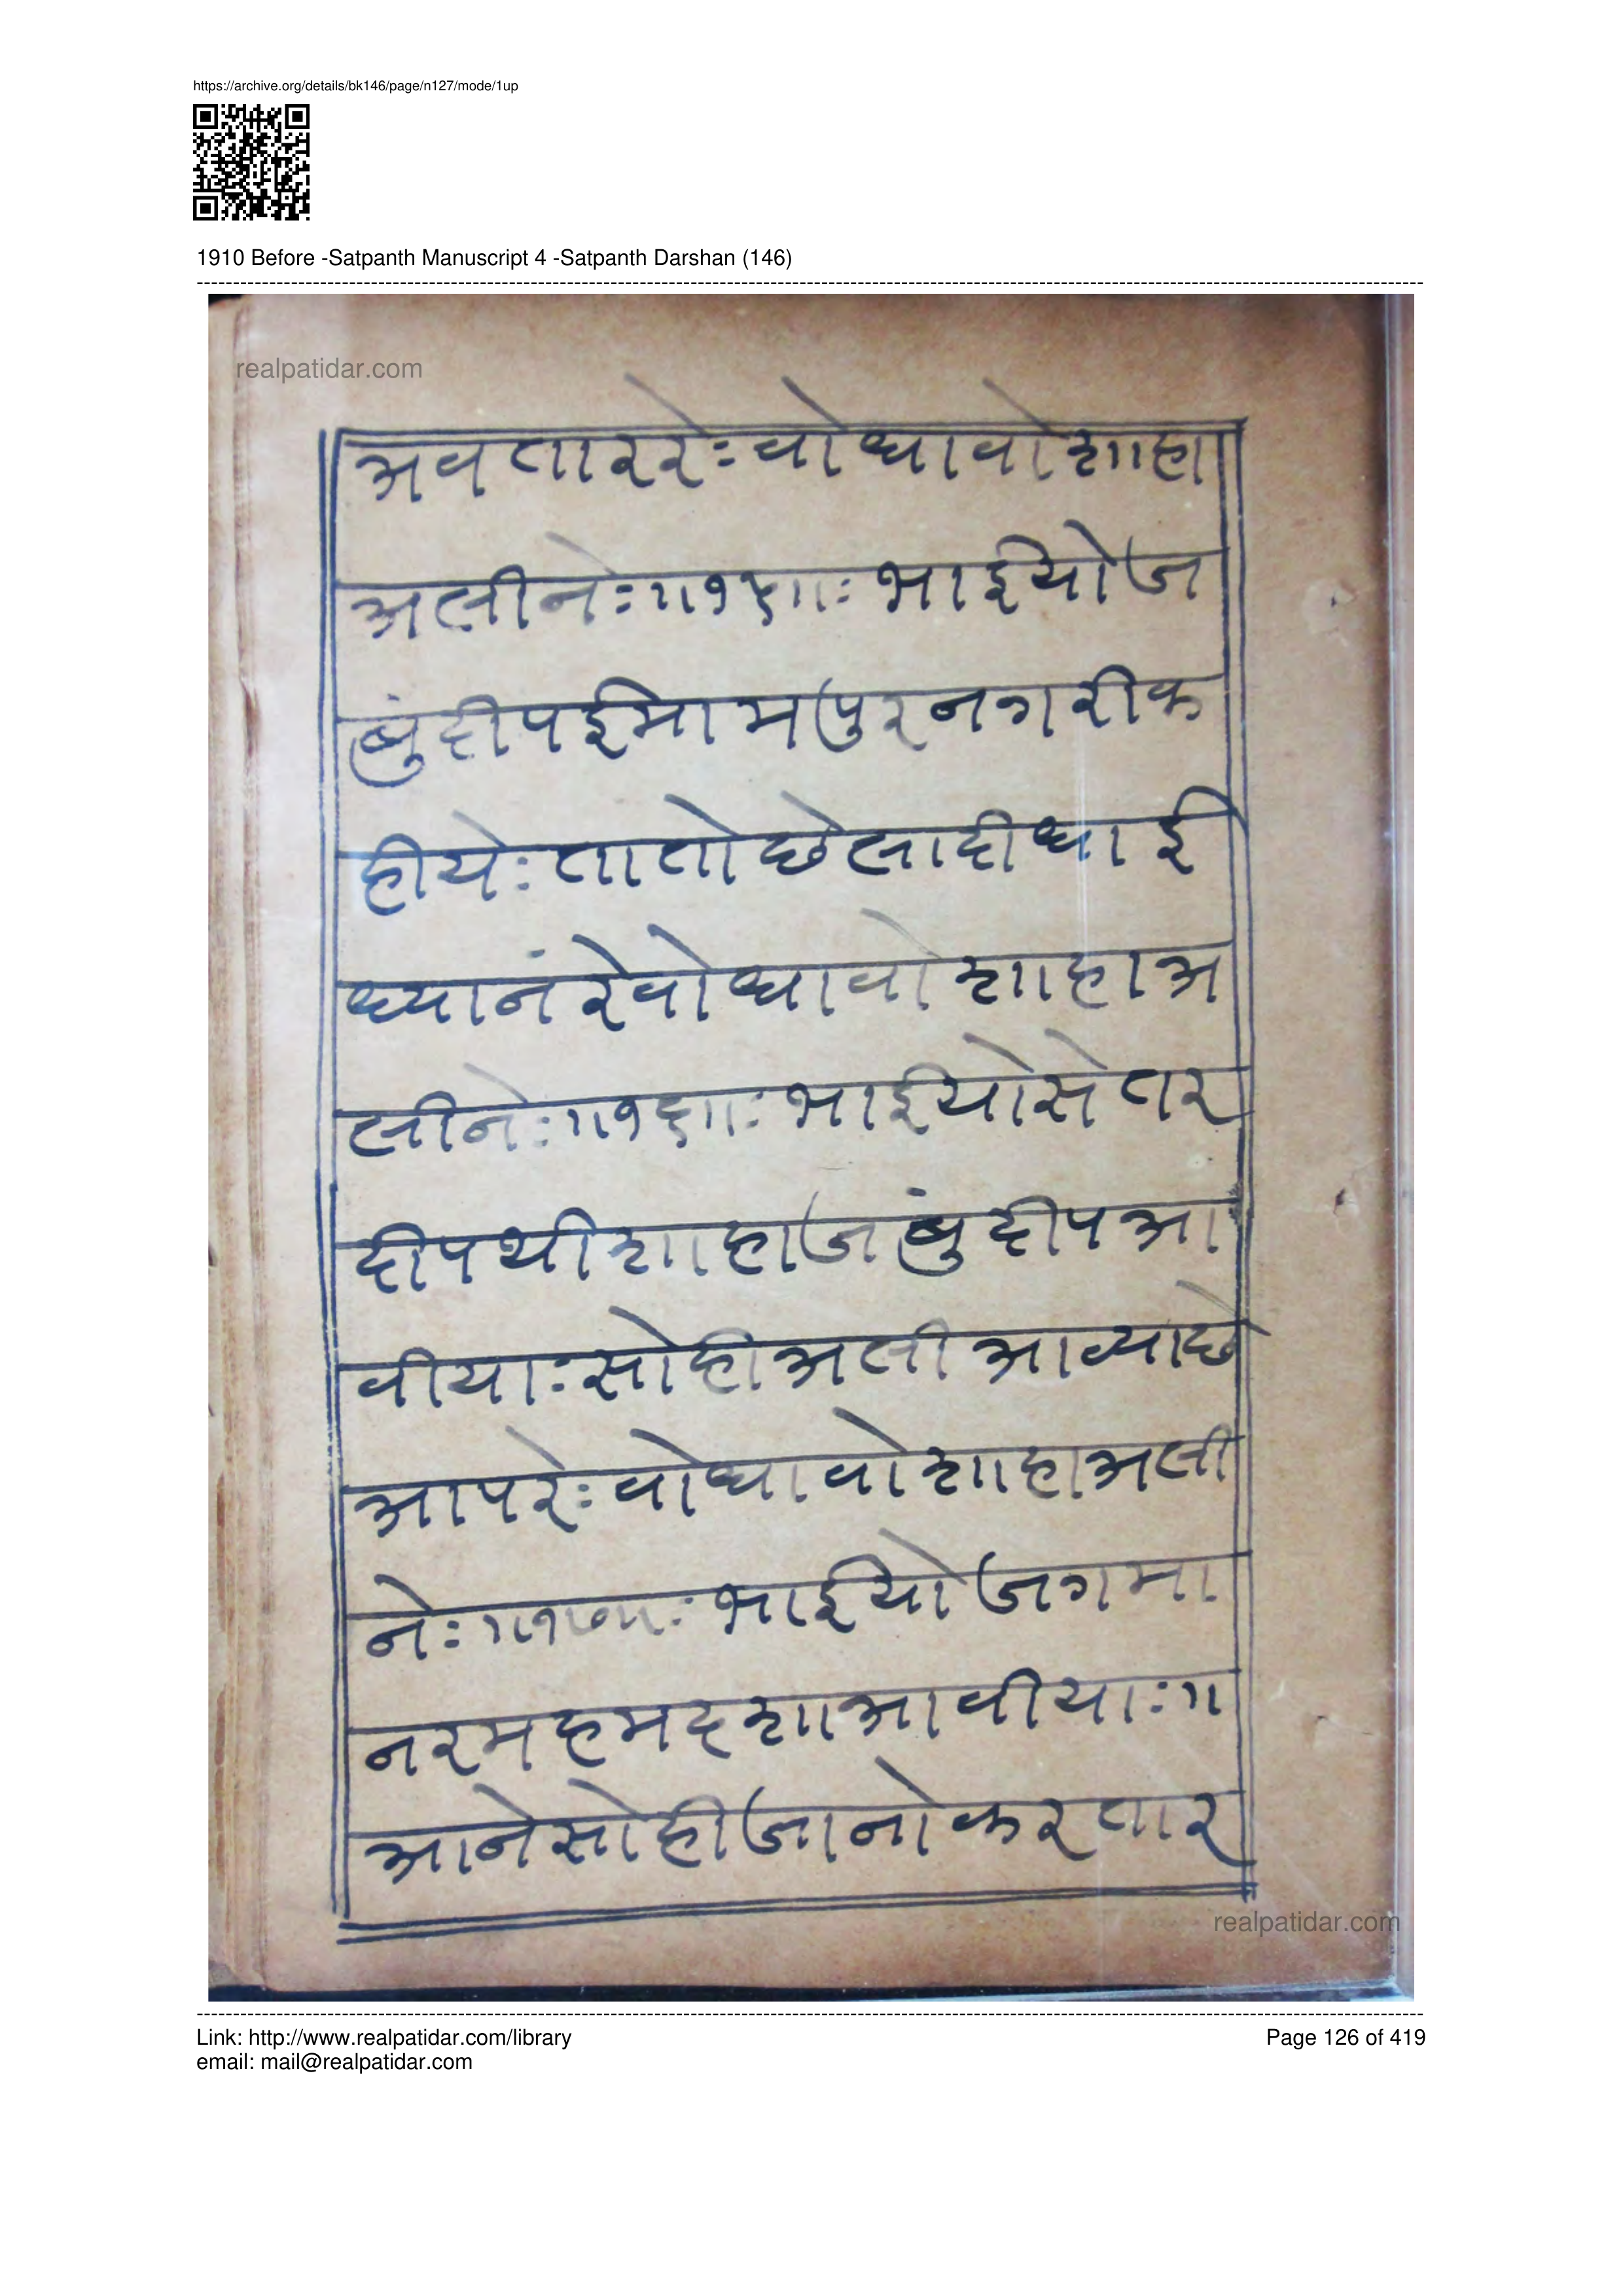 https://archive.org/details/bk146/page/n127/mode/1up
1910 Before -Satpanth Manuscript 4 -Satpanth Darshan (146)
realpatidar.com
अवताररेः वोधावो शाहा
अलीनेः॥१५॥ः भाईयो ज
बुंदीप ईमामपुर नगरी क
हीयेः तातो छेला दीधा ई
ध्यानं रे वोधावो शाहा अ
लीनेः॥१६॥ः भाईयो सेतर
दीप थी शाहा जबुंदीप आ
वीयाः सोही अली आव्या छे
आपरेः वोधावो शाहा अली
नेः॥१७॥ः भाईयो जगमा
नर महमदशा आवीयाः॥
आने सोही जानो करतार
realpatidar.com
Link: http://www.realpatidar.com/library
Page 126 of 419
email: mail@realpatidar.com